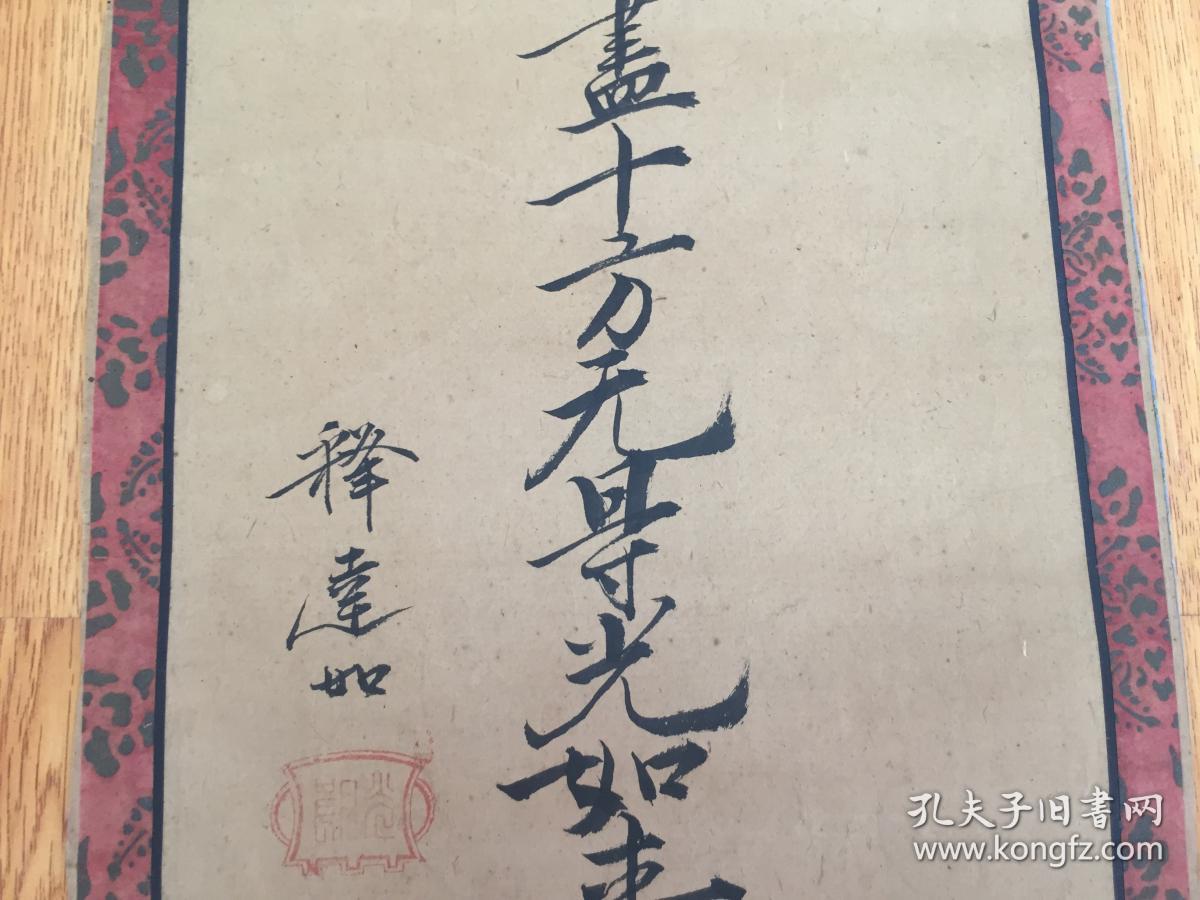 盡十方无㝵光如来
釋達如
孔夫子旧書网
www.kongfz.com